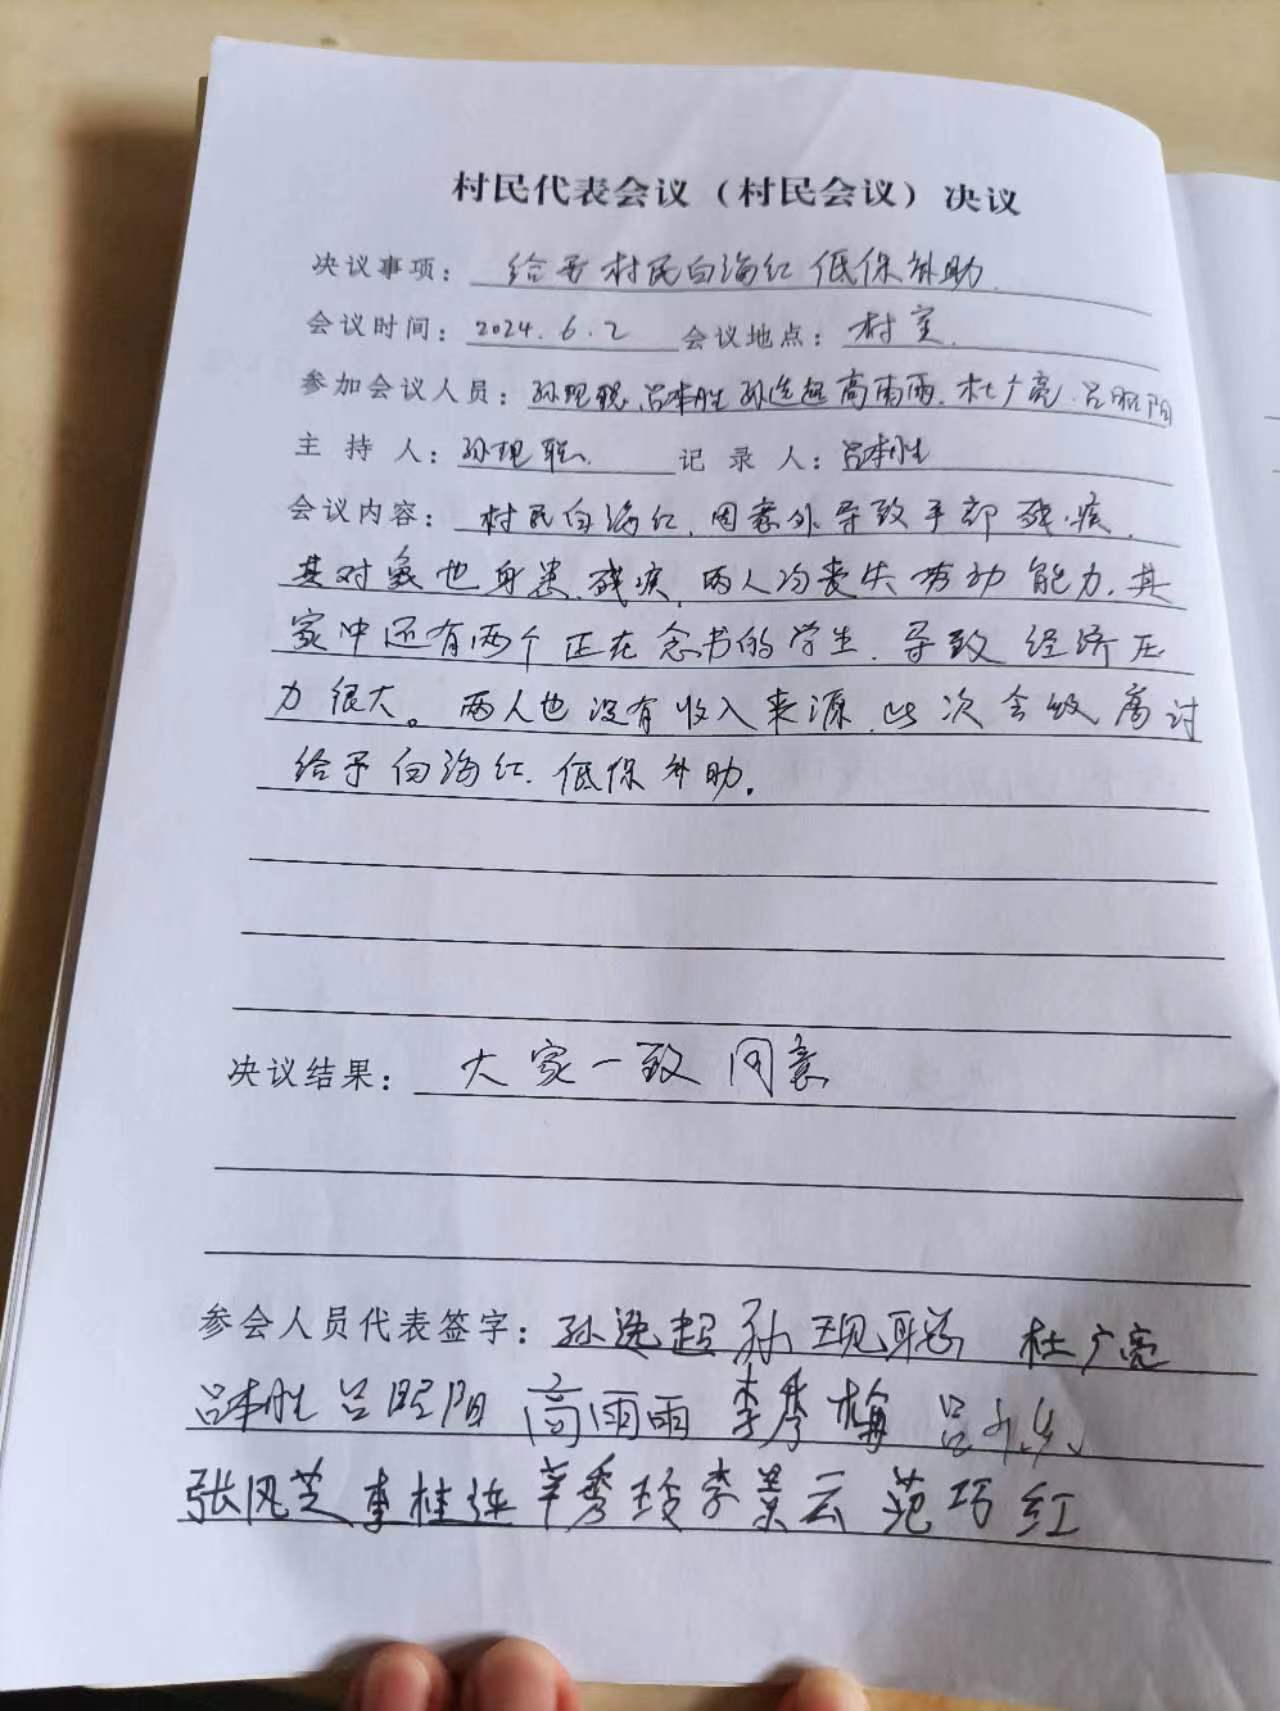 村民代表会议（村民会议）决议
决议事项：给予村民白海红低保补助.
会议时间：2024.6.2 会议地点：村室.
参加会议人员：孙现聪、吕本胜 孙选超 高雨雨. 杜广亮. 吕昭阳
主持人：孙现聪. 记录人：吕本胜
会议内容：村民白海红, 因意外导致手部残疾.
其对象也身患残疾, 两人均丧失劳动能力. 其
家中还有两个正在念书的学生. 导致经济压
力很大。两人也没有收入来源. 此次会议商讨
给予白海红. 低保补助.
决议结果：大家一致同意
参会人员代表签字：孙选超 孙现聪 杜广亮
吕本胜 吕昭阳 高雨雨 李秀梅 吕
张风芝 李桂连 秀玲 李景云 范巧红